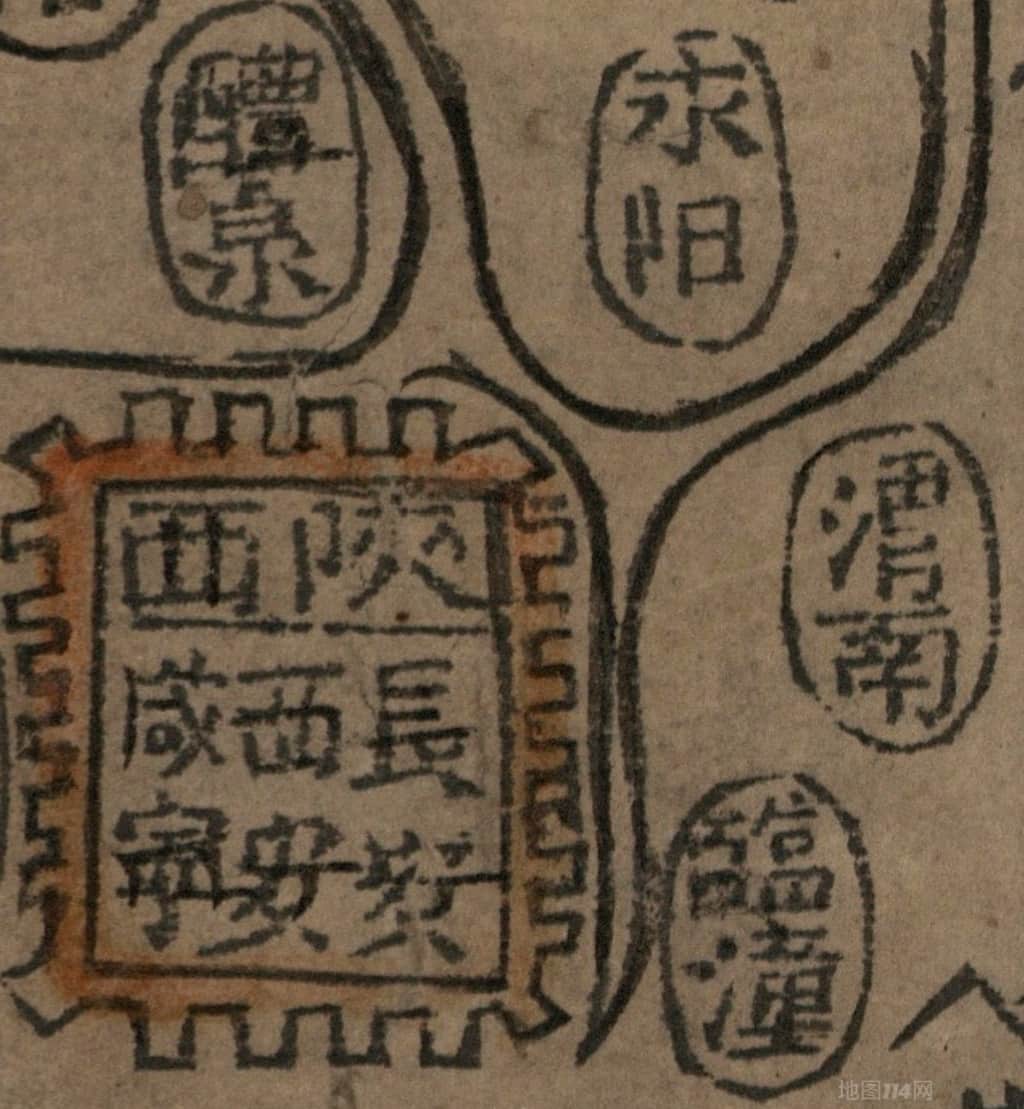 醴泉
永阳
陝西
長
西安
咸寧
渭南
臨潼
地图114网